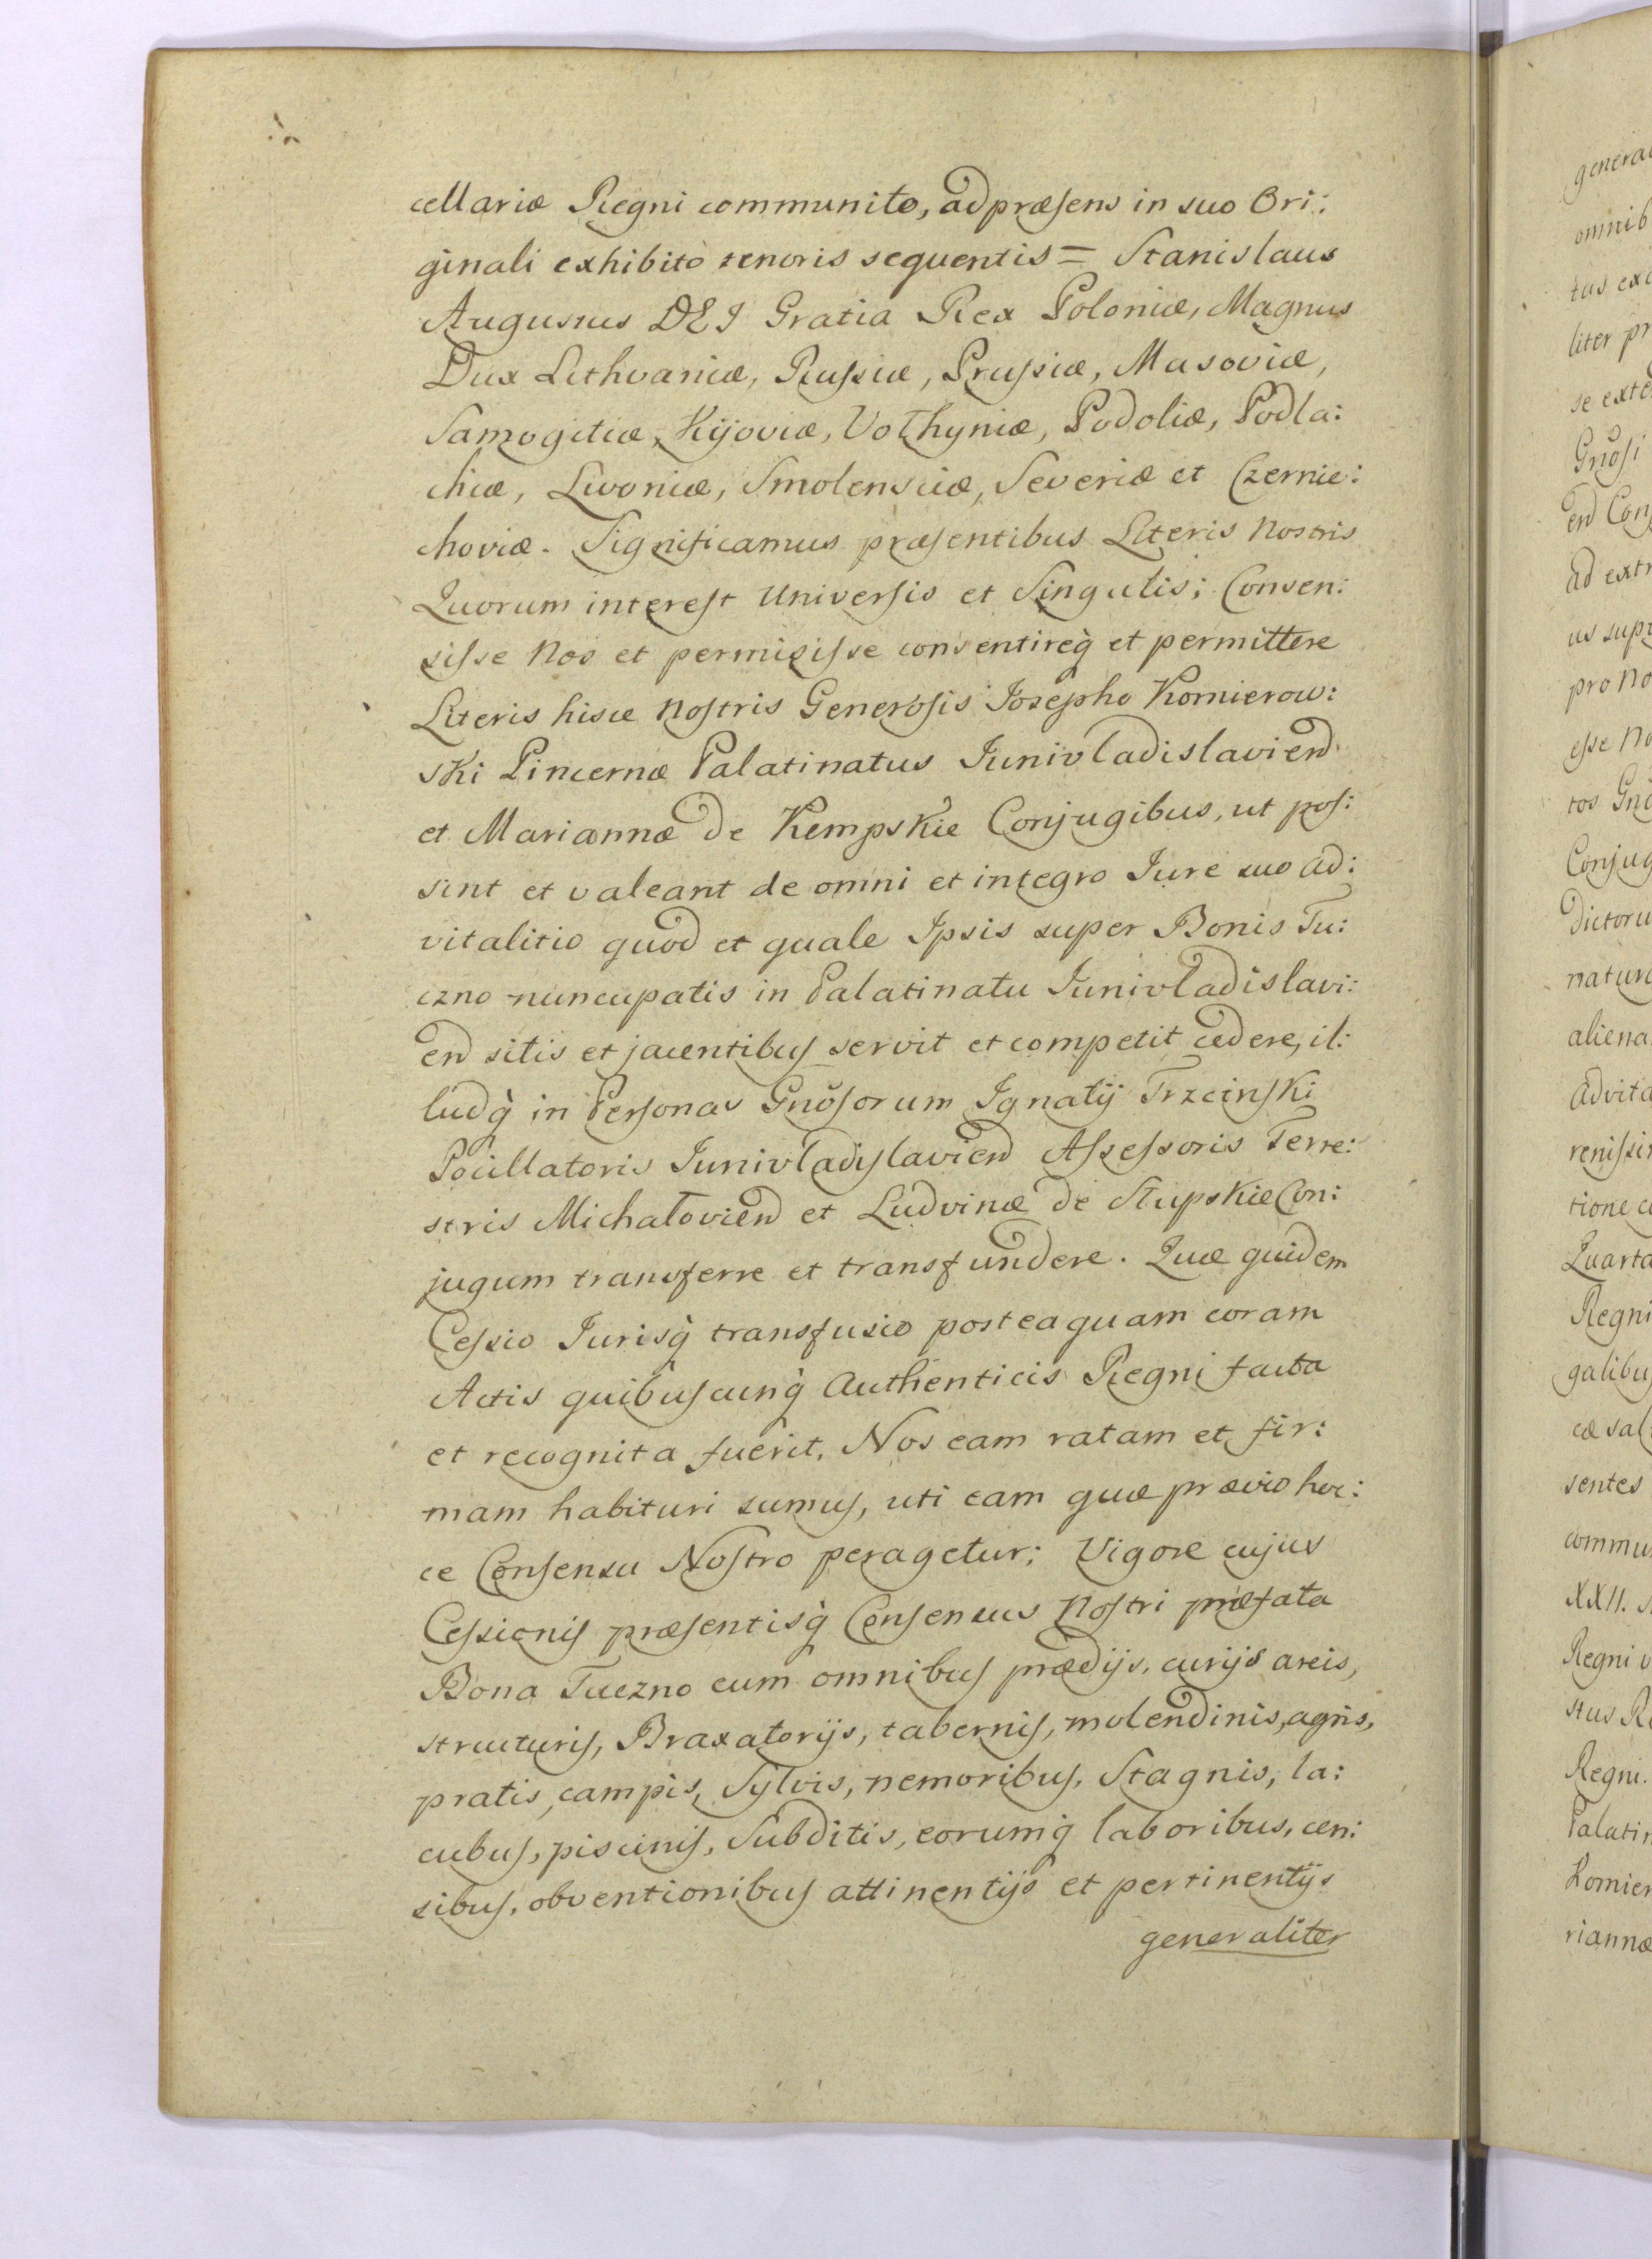 cellariæ Regni communito, ad præsens in suo Ori:
ginali exhibito tenoris sequentis = Stanislaus
Augustus DEI Gratia Rex Poloniæ, Magnus
Dux Lithvaniæ, Russiæ, Prussiæ, Masoviæ,
Samogitiæ, Kijoviæ, Vołhyniæ, Podoliæ, Podla:
chiæ, Livoniæ, Smolensciæ, Severiæ et Czernie:
choviæ. Significamus præsentibus Literis Nostris
Quorum interest Universis et Singulis; Consen:
sisse Nos et permisisse consentireq̀ et permittere
Literis hisce Nostris Generosis Josepho Komierow:
ski Pincernæ Palatinatus Junivladislavien̄
et Mariannæ de Kempskie Conjugibus, ut pos:
sint et valeant de omni et integro Jure suo ad:
vitalitio quod et quale Ipsis super Bonis Tu:
czno nuncupatis in Palatinatu Junivladislavi:
en̄ sitis et jacentibus servit et competit cedere, il:
ludq̀ in Personas Gnõsorum Ignatij Trzcinski
Pocillatoris Junivladyslavien̄ Assessoris Terre:
stris Michałovien̄ et Ludvinæ de Słupskie Con:
jugum transferre et transfundere. Quæ quidem
Cessio Jurisq̀ transfusio posteaquam coram
Actis quibuscunq̀ Authenticis Regni facta
et recognita fuerit, Nos eam ratam et fir:
mam habituri sumus, uti eam quæ prævio hoc:
ce Consensu Nostro peragetur; Vigore cujus
Cessionis præsentisq̀ Consensus Nostri præfata
Bona Tuczno cum omnibus prædijs, curijs areis,
structuris, Braxatorijs, tabernis, molendinis, agris,
pratis, campis, Sylvis, nemoribus, Stagnis, la:
cubus, piscinis, Subditis, eorumq̀ laboribus, cen:
sibus, obventionibus attinentijs et pertinentijs
generaliter